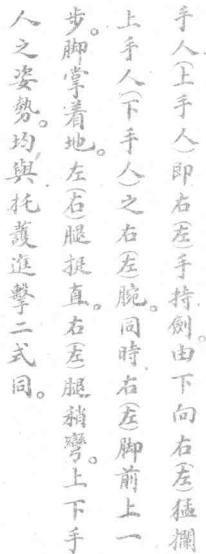 手人(上手人)即右(左)手持劍。由下向右(左)猛攔
上手人(下手人)之右(左)腕。同時右(左)脚前上一
步。脚掌着地。左(右)腿挺直。右(左)腿稍彎。上下手
人之姿勢。均與托護進擊二式同。